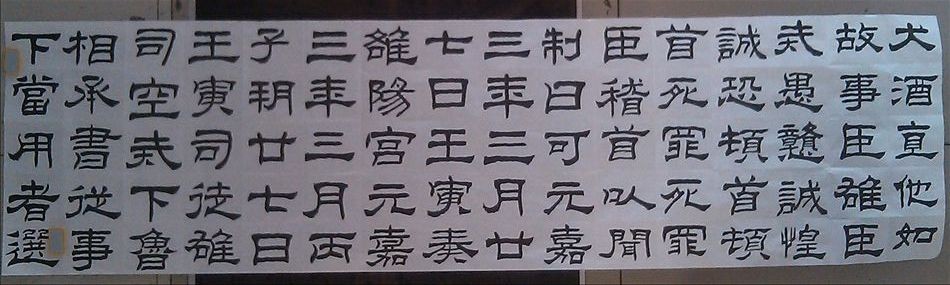 犬酒直他如
故事臣雄臣
戒愚戇誠惶
誠恐頓首頓
首死罪死罪
臣稽首以聞
制曰可元嘉
三年三月廿
七日壬寅奏
雒陽宮元嘉
三年三月丙
子朔廿七日
壬寅司徒雄
司空戒下魯
相承書從事
下當用者選